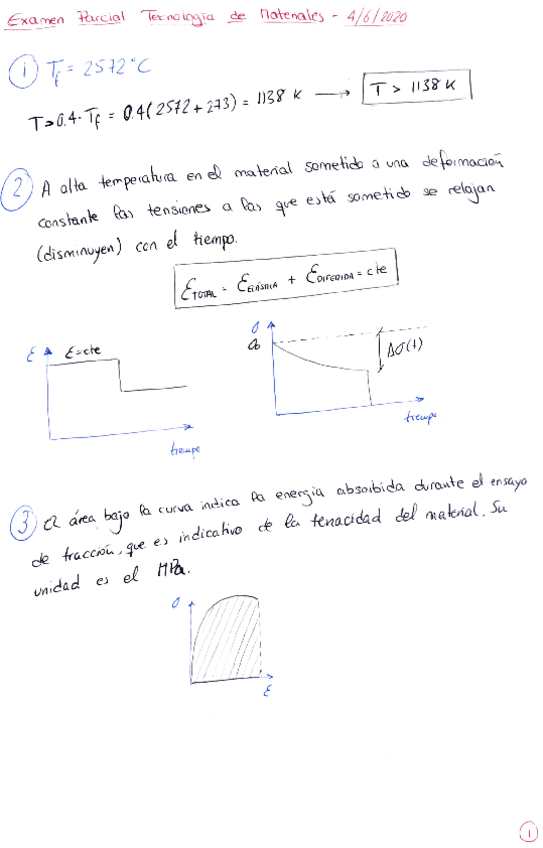 Examen Parcial Tecnología de Materiales - 4/6/2020
1 Tf = 2572 °C
T > 0.4 · Tf = 0.4 (2572 + 273) = 1138 K → T > 1138 K
2 A alta temperatura en el material sometido a una deformación
constante las tensiones a las que está sometido se relajan
(disminuyen) con el tiempo.
ε TOTAL = ε ELÁSTICA + ε DIFERIDA = cte
ε ε=cte
tiempo
σ
σ0
Δσ(t)
tiempo
3 El área bajo la curva indica la energía absorbida durante el ensayo
de tracción, que es indicativo de la tenacidad del material. Su
unidad es el MPa.
σ
ε
1